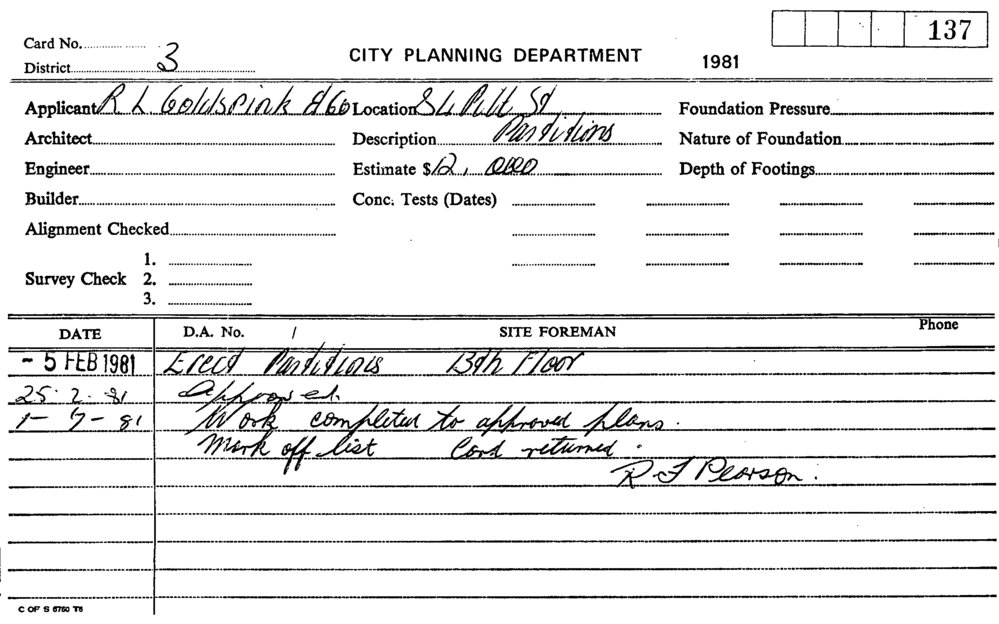 137
Card No.
District 3
CITY PLANNING DEPARTMENT 1981
Applicant R L Goldspink &Co Location 84 Pitt St Foundation Pressure
Architect Description Partitions Nature of Foundation
Engineer Estimate $12,000 Depth of Footings
Builder Conc. Tests (Dates)
Alignment Checked
1.
Survey Check 2.
3.
DATE D.A. No. / SITE FOREMAN Phone
- 5 FEB 1981 Erect Partitions 13th Floor
25. 2. 81 Approved.
1- 7- 81 Work completed to approved plans.
Mark off list Card returned.
R F Pearson.
C OF S 6760 T6